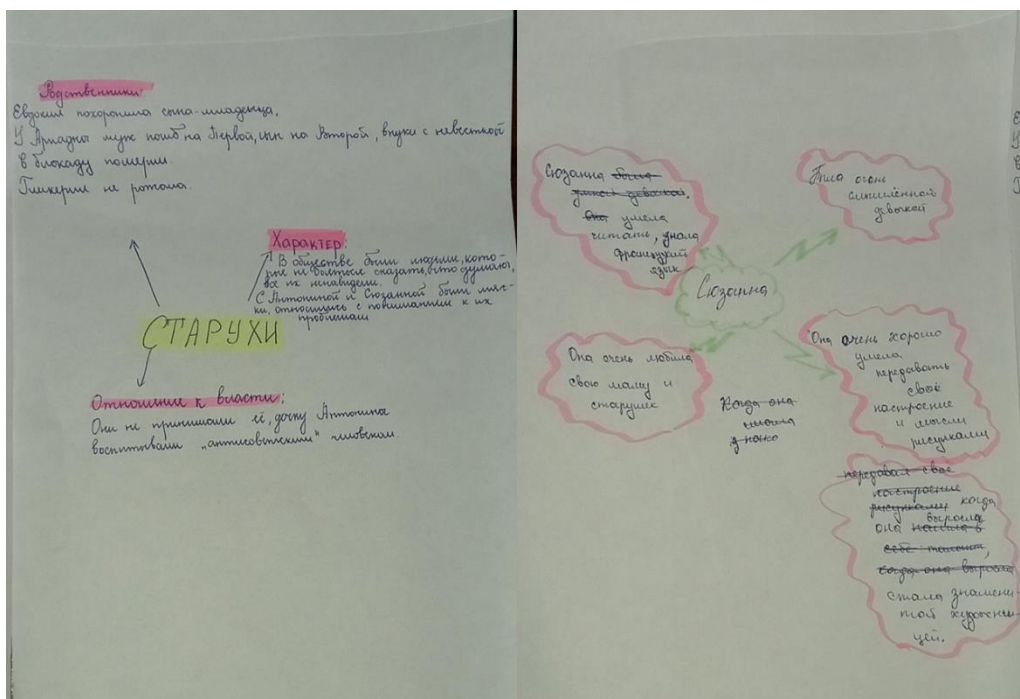 Родственники:
Евдокия похоронила сына-младенца.
У Ариадны муж погиб на Первой, сын на Второй, внуки с невесткой
в блокаду померли.
Гликерия не рожала.
Характер:
В обществе были людьми, кото-
рые не боятся сказать, что думают,
все их ненавидели.
С Антониной и Сюзанной были мяг-
ки, относились с пониманием к их
проблемам
СТАРУХИ
Отношение к власти:
Они не принимали её, дочку Антонины
воспитывали "антисоветским" человеком.
Сюзанна была
девочкой.
Она умела
читать, знала
французский
язык
Была очень
смышлённой
девочкой
Сюзанна
Она очень любила
свою маму и
старушек
Когда она
Она очень хорошо
умела
передавать
своё
настроение
и мысли
рисунками
передавал свое
настроение
рисунками когда
выросла
она нашла в
себе талант,
когда она выросла
стала знамени-
той художни-
цей.
Е
У
в
Г